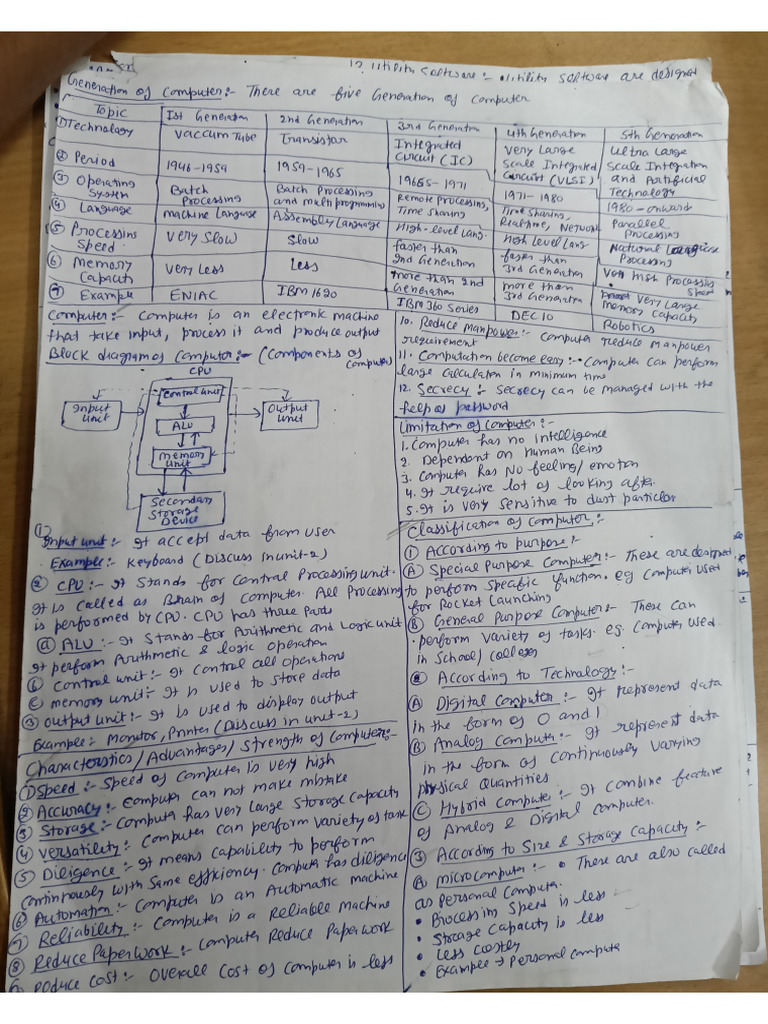 12 Utility Software:- Utility Software are designed
Generation of Computer:- There are five Generation of Computer
Topic | Ist Generation | 2nd Generation | 3rd Generation | 4th Generation | 5th Generation
① Technology | Vaccum Tube | Transistor | Integrated Circuit (IC) | Very Large Scale Integrated Circuit (VLSI) | Ultra Large Scale Integration and Artificial Technology
② Period | 1946-1959 | 1959-1965 | 1965-1971 | 1971-1980 | 1980-onward
③ Operating System | Batch Processing | Batch Processing and multiprogramming | Remote Processing, Time sharing | Time sharing, Realtime, Network | Parallel Processing
④ Language | machine Language | Assembly Language | High-level Lang. | High Level Lang | Natural Language Processing
⑤ Processing Speed | Very Slow | Slow | faster than 2nd Generation | faster than 3rd Generation | Very High Processing Speed
⑥ Memory Capacity | Very Less | Less | more than 2nd Generation | more than 3rd Generation | Very Large Memory Capacity
⑦ Example | ENIAC | IBM 1620 | IBM 360 Series | DEC 10 | Robotics
Computer:- Computer is an electronic machine
that take input, process it and produce output
Block diagram of Computer:- (Components of
Computer)
CPU
Control unit
Input
Unit
ALU
Output
Unit
Memory
Unit
Secondary
Storage
Device
① Input unit:- It accept data from user
Example:- Keyboard (Discuss in unit-2)
② CPU:- It Stands for Central Processing unit.
It is called as Brain of Computer. All Processing
is performed by CPU. CPU has three Parts
ⓐ ALU:- It Stands for Arithmetic and Logic unit
It perform Arithmetic & logic operation
ⓑ Control unit:- It Control all operations
ⓒ memory unit:- It is used to store data
③ output unit:- It is used to display output
Example:- Monitor, Printer (Discuss in unit-2)
Characteristics/Advantages/Strength of Computer:-
① Speed:- Speed of Computer is very high
② Accuracy:- Computer can not make mistake
③ Storage:- Computer has very large storage capacity
④ Versatility:- Computer can perform variety of task
⑤ Diligence:- It means capability to perform
continuously with same efficiency. Computer has diligence
⑥ Automation:- Computer is an Automatic machine
⑦ Reliability:- Computer is a Reliable Machine
⑧ Reduce Paper work:- Computer Reduce Paperwork
Reduce Cost:- Overall Cost of Computer is less
10. Reduce Manpower:- Computer reduce manpower
requirement
11. Computation become easy:- Computer can perform
large calculation in minimum time
12. Secrecy:- Secrecy can be managed with the
help of password
Limitation of Computer:-
1. Computer has no intelligence
2. Dependent on Human Being
3. Computer has NO feeling/emotion
4. It require lot of looking after
5. It is very sensitive to dust particles
Classification of Computer:-
① According to purpose:-
Ⓐ Special Purpose Computer:- These are designed
to perform specific function. eg Computer used
for Rocket Launching
Ⓑ General Purpose Computer:- These can
perform variety of tasks. eg. Computer used
in School/colleges
② According to Technology:-
Ⓐ Digital Computer:- It represent data
in the form of 0 and 1
Ⓑ Analog Computer:- It represent data
in the form of continuously varying
physical Quantities
Ⓒ Hybrid Computer:- It combine feature
of Analog & Digital computer.
③ According to Size & Storage Capacity:-
Ⓐ microcomputer:- • These are also called
as personal Computer.
• Processing Speed is less
• Storage Capacity is less
• Less costly
• Example → Personal Compute